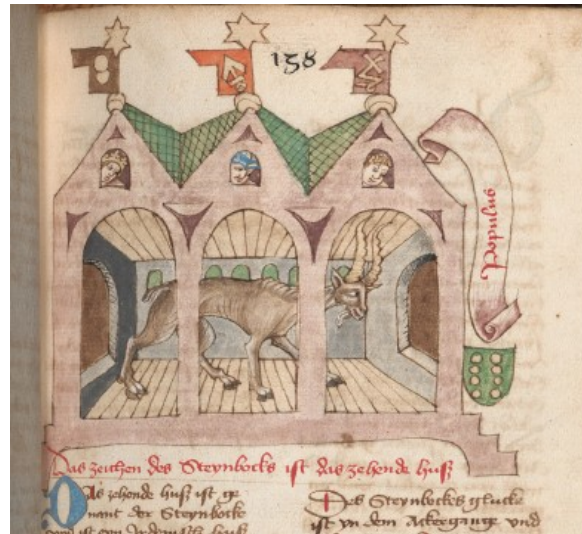 158
Populus
Das zeichen des Steynbocks ist das zehende huß
Das zehende huß ist ge
nant der Steynbocke
ist eyn huß
Des Steynbockes glucke
ist yn dem Ackergange vnd